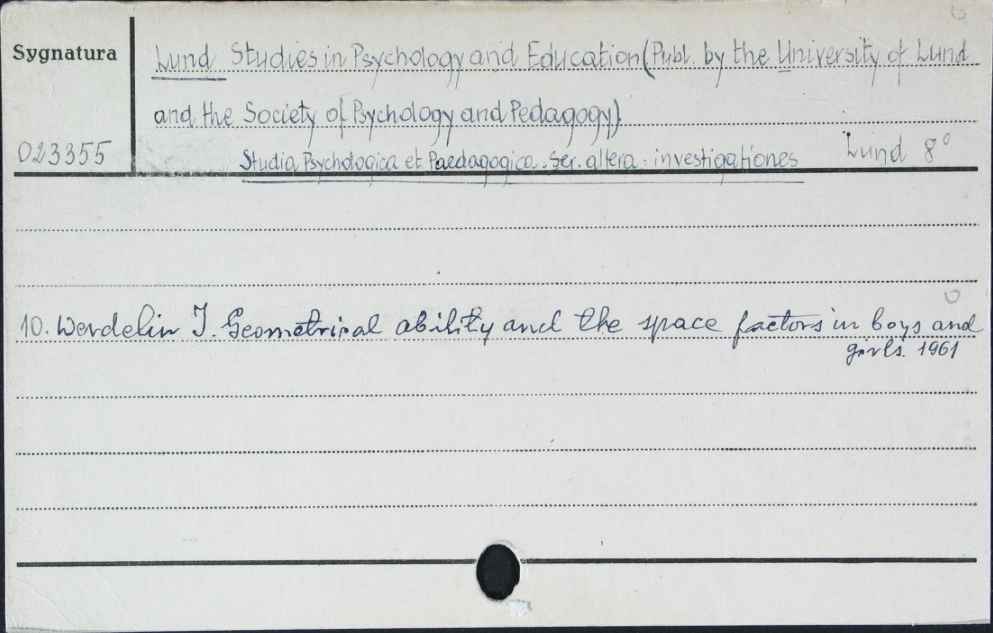 Sygnatura
Lund Studies in Psychology and Education (Publ. by the University of Lund
and the Society of Psychology and Pedagogy)
023355
Lund 8°
Studia Psychologica et Paedagogica. Ser. altera. investigationes
10. Werdelin I. Geometrical ability and the space factors in boys and
girls. 1961